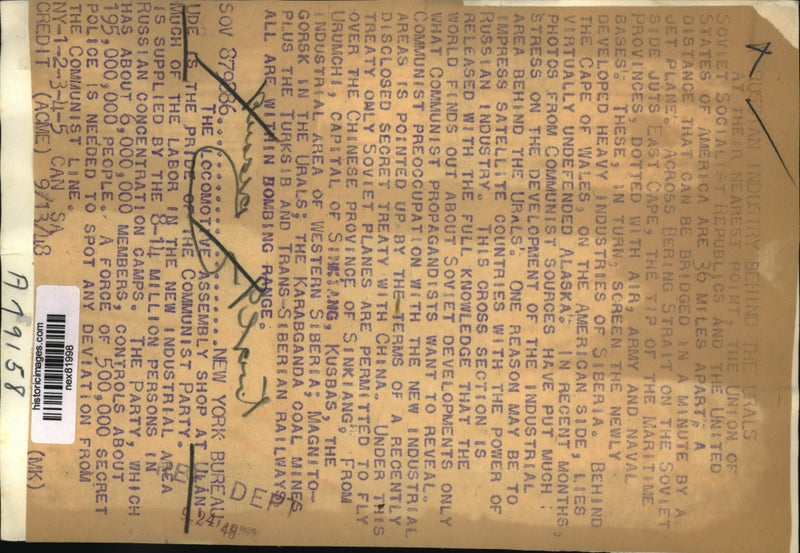 RUSSIAN INDUSTRY BEHIND THE URALS
AT THEIR NEAREST POINT, THE UNION OF
SOVIET SOCIALIST REPUBLICS AND THE UNITED
STATES OF AMERICA ARE 36 MILES APART, A
DISTANCE THAT CAN BE BRIDGED IN A MINUTE BY A
JET PLANE. ACROSS BERING STRAIT ON THE SOVIET
SIDE, JUTS EAST CAPE, THE TIP OF THE MARITIME
PROVINCES DOTTED WITH AIR, ARMY AND NAVAL
BASES. THESE, IN TURN, SCREEN THE NEWLY
DEVELOPED HEAVY INDUSTRIES OF SIBERIA. BEHIND
THE CAPE OF WALES, ON THE AMERICAN SIDE, LIES
VIRTUALLY UNDEFENDED ALASKA. IN RECENT MONTHS,
PHOTOS FROM COMMUNIST SOURCES HAVE PUT MUCH
STRESS ON THE DEVELOPMENT OF THE INDUSTRIAL
AREA BEHIND THE URALS. ONE REASON MAY BE TO
IMPRESS SATELLITE COUNTRIES WITH THE POWER OF
RUSSIAN INDUSTRY. THIS CROSS SECTION IS
RELEASED WITH THE FULL KNOWLEDGE THAT THE
WORLD FINDS OUT ABOUT SOVIET DEVELOPMENTS ONLY
WHAT COMMUNIST PROPAGANDISTS WANT TO REVEAL.
COMMUNIST PREOCCUPATION WITH THE NEW INDUSTRIAL
AREAS IS POINTED UP BY THE TERMS OF A RECENTLY
DISCLOSED SECRET TREATY WITH CHINA. UNDER THIS
TREATY ONLY SOVIET PLANES ARE PERMITTED TO FLY
OVER THE CHINESE PROVINCE OF SINKIANG. FROM
URUMCHI, CAPITAL OF SINKIANG, KUSBAS, THE
INDUSTRIAL AREA OF WESTERN SIBERIA; MAGNITO-
GORSK IN THE URALS; THE KARABGANDA COAL MINES
PLUS THE TURKSIB AND TRANS-SIBERIAN RAILWAYS
ALL ARE WITHIN BOMBING RANGE.
SOV 879086..........NEW YORK BUREAU
THE LOCOMOTIVE ASSEMBLY SHOP AT ULAN
UDE IS THE PRIDE OF THE COMMUNIST PARTY.
MUCH OF THE LABOR IN THE NEW INDUSTRIAL AREA
IS SUPPLIED BY THE 8-14 MILLION PERSONS IN
RUSSIAN CONCENTRATION CAMPS. THE PARTY, WHICH
HAS ABOUT 6,000,000 MEMBERS, CONTROLS ABOUT
195,000,000 PEOPLE. A FORCE OF 500,000 SECRET
POLICE IS NEEDED TO SPOT ANY DEVIATION FROM
THE COMMUNIST LINE.
NY-1-2-3-4-5 CAN SA
CREDIT (ACME) 9/13/48 (MK)
DEPT
24 '48
A79158
historicimages.com
nex81998